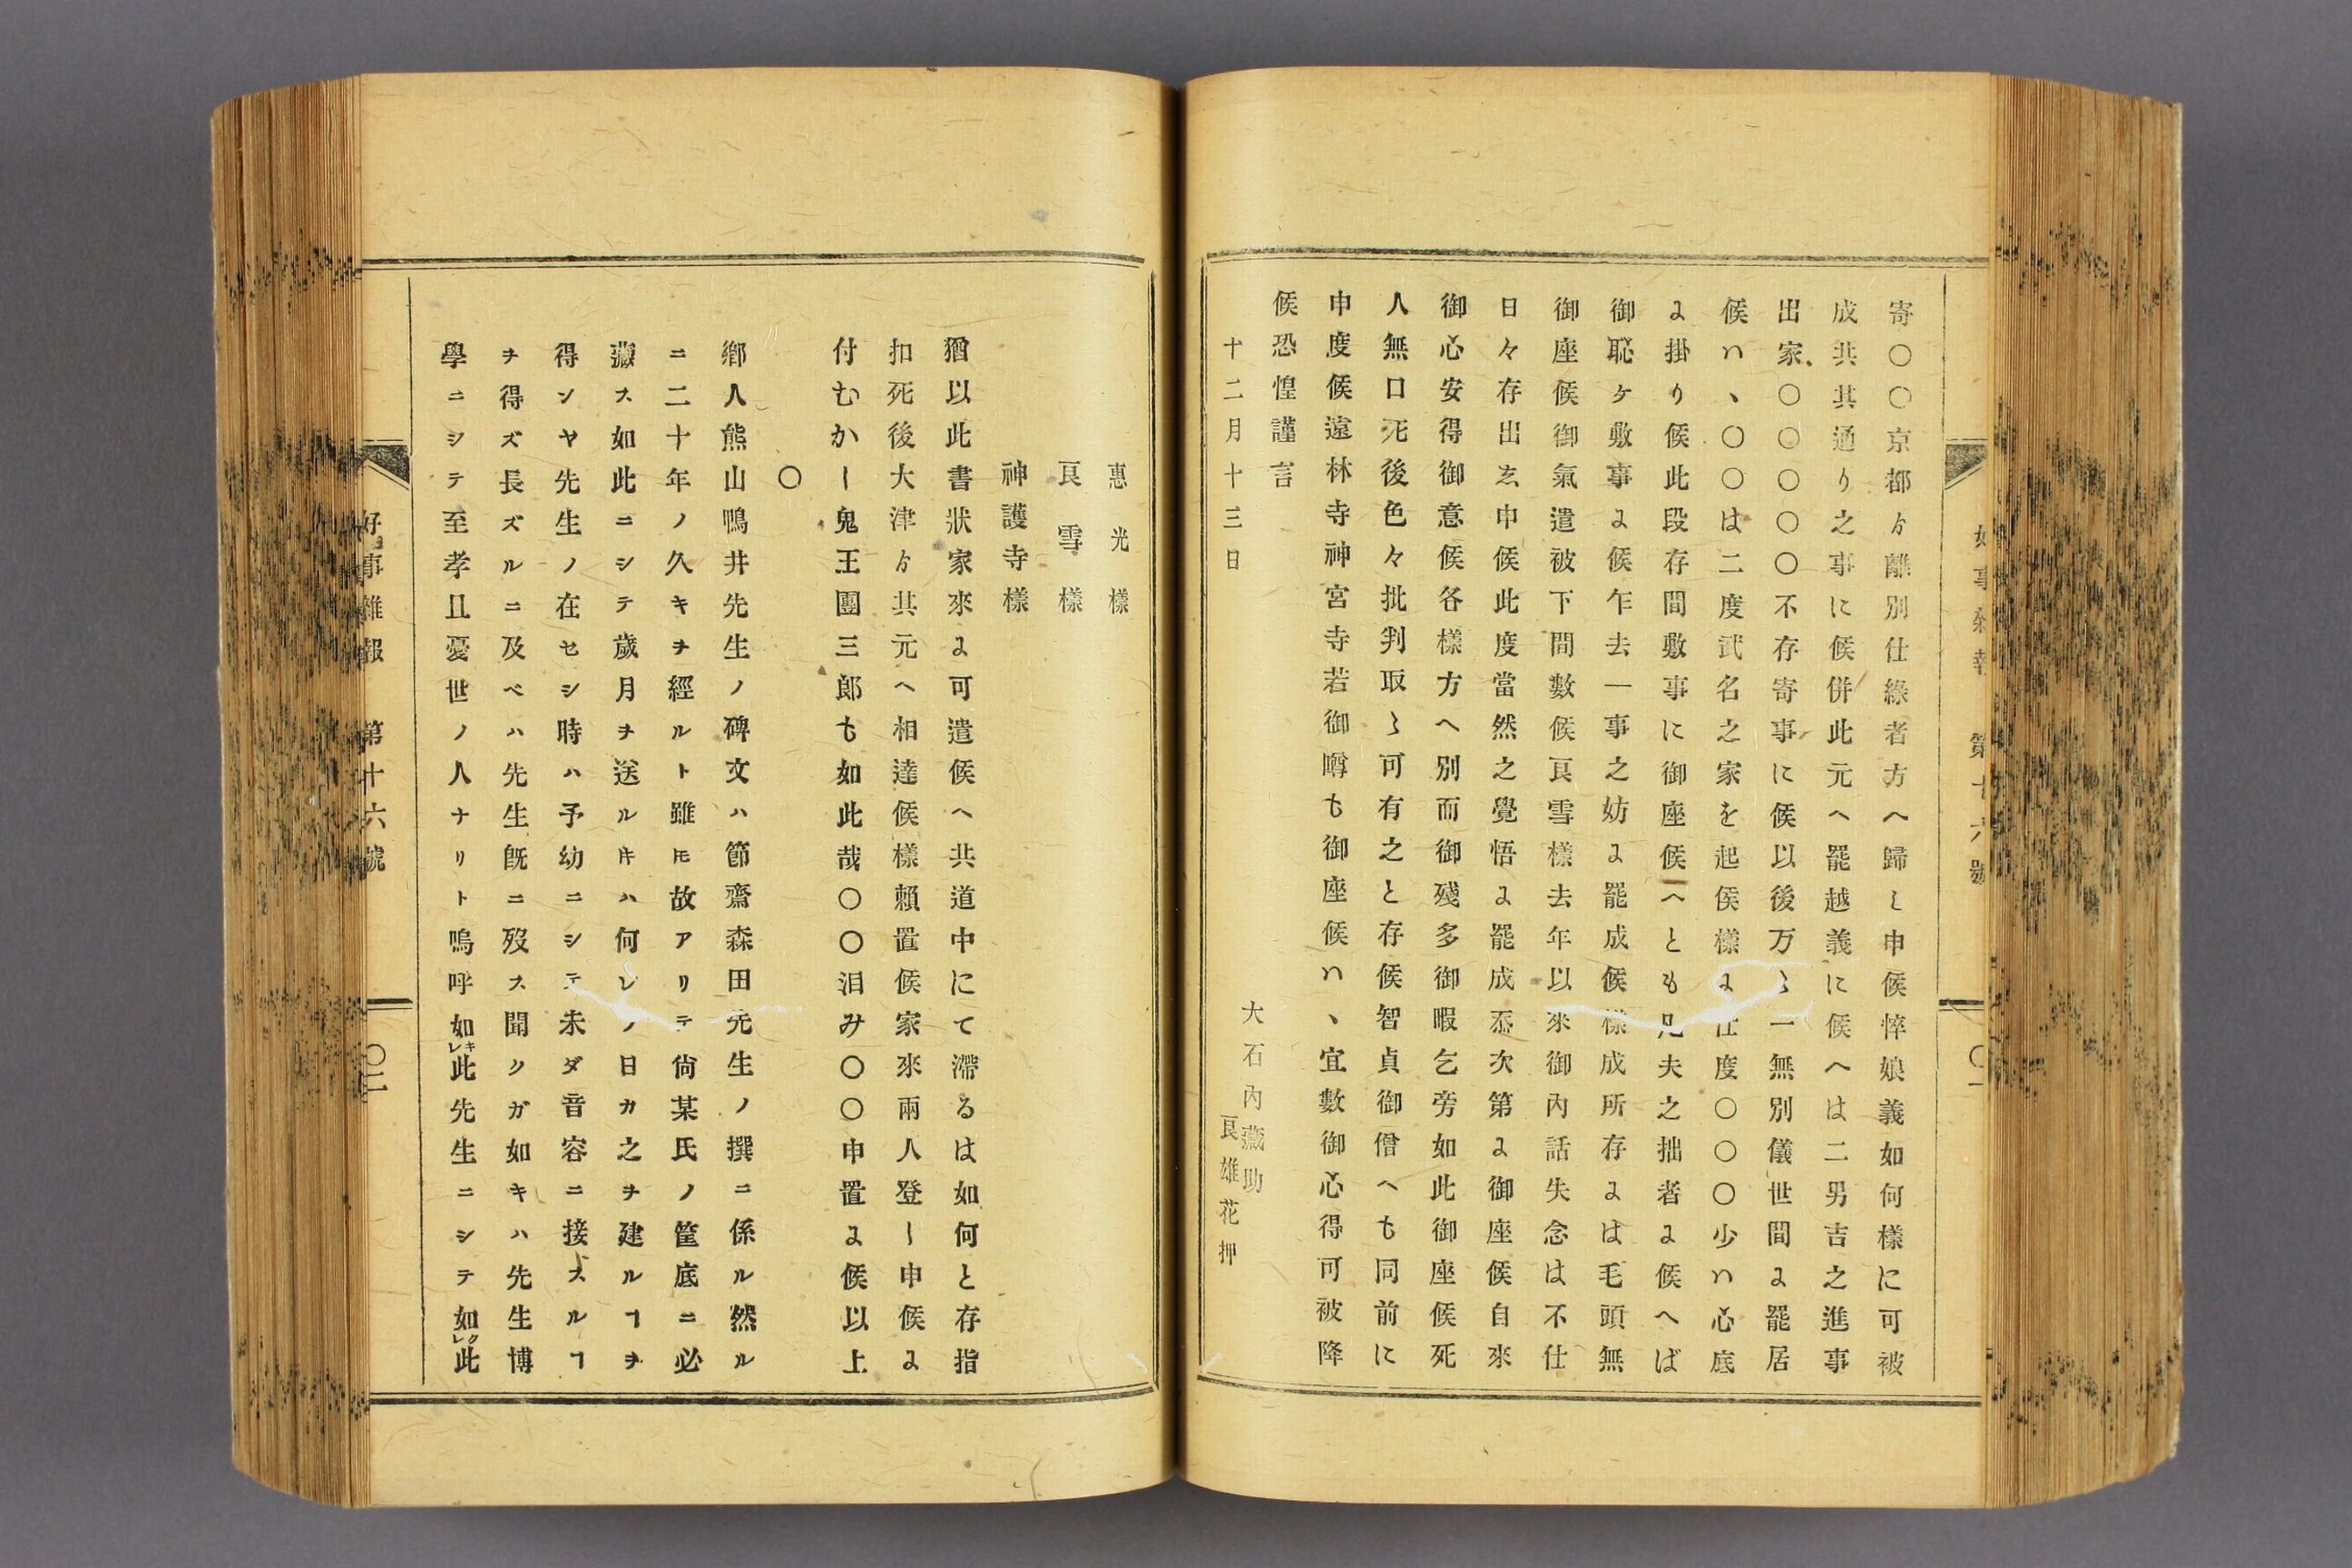 寄〇〇京都ゟ離別仕緣者方へ歸し申候悴娘義如何樣に可被
成共其通り之事に候併此元へ罷越義に候へは二男吉之進事
出家〇〇〇〇〇不存寄事に候以後万々一無別儀世間よ罷居
候ハ、〇〇は二度武名之家を起侯樣よ仕度〇〇〇少ハ心底
よ掛り候此段存間敷事に御座候へとも兄夫之拙者よ候へば
御恥ケ敷事よ候乍去一事之妨よ罷成候樣成所存よは毛頭無
御座候御氣遣被下間數候良雪樣去年以來御內話失念は不仕
日々存出ゑ申候此度當然之覺悟よ罷成忝次第よ御座候自來
御心安得御意候各樣方へ別而御殘多御暇乞旁如此御座候死
人無口死後色々批判取〻可有之と存候智貞御僧へも同前に
申度候遠林寺神宮寺若御噂も御座候ハ、宜數御心得可被降
候恐惶謹言
十二月十三日
大石內藏助
良雄花押
惠光樣
良雪樣
神護寺樣
猶以此書狀家來よ可遣候へ共道中にて滯るは如何と存指
扣死後大津ゟ其元へ相達候樣賴置候家來兩人登し申候よ
付むかし鬼王團三郎も如此哉〇〇泪み〇〇申置よ候以上
〇
鄉人熊山鴨井先生ノ碑文ハ節齋森田先生ノ撰ニ係ル然ル
ニ二十年ノ久キヲ經ルト雖𪜈故アリテ尙某氏ノ筐底ニ必
藏ス如此ニシテ歲月ヲ送ル𪜈ハ何レノ日カ之ヲ建ルヿヲ
得ンヤ先生ノ在セシ時ハ予幼ニシテ未ダ音容ニ接スルヿ
ヲ得ズ長ズルニ及ベハ先生旣ニ歿ス聞クガ如キハ先生博
學ニシテ至孝且憂世ノ人ナリト嗚呼如レキ此先生ニシテ如レク此
好事雜報　第十六號　〇二